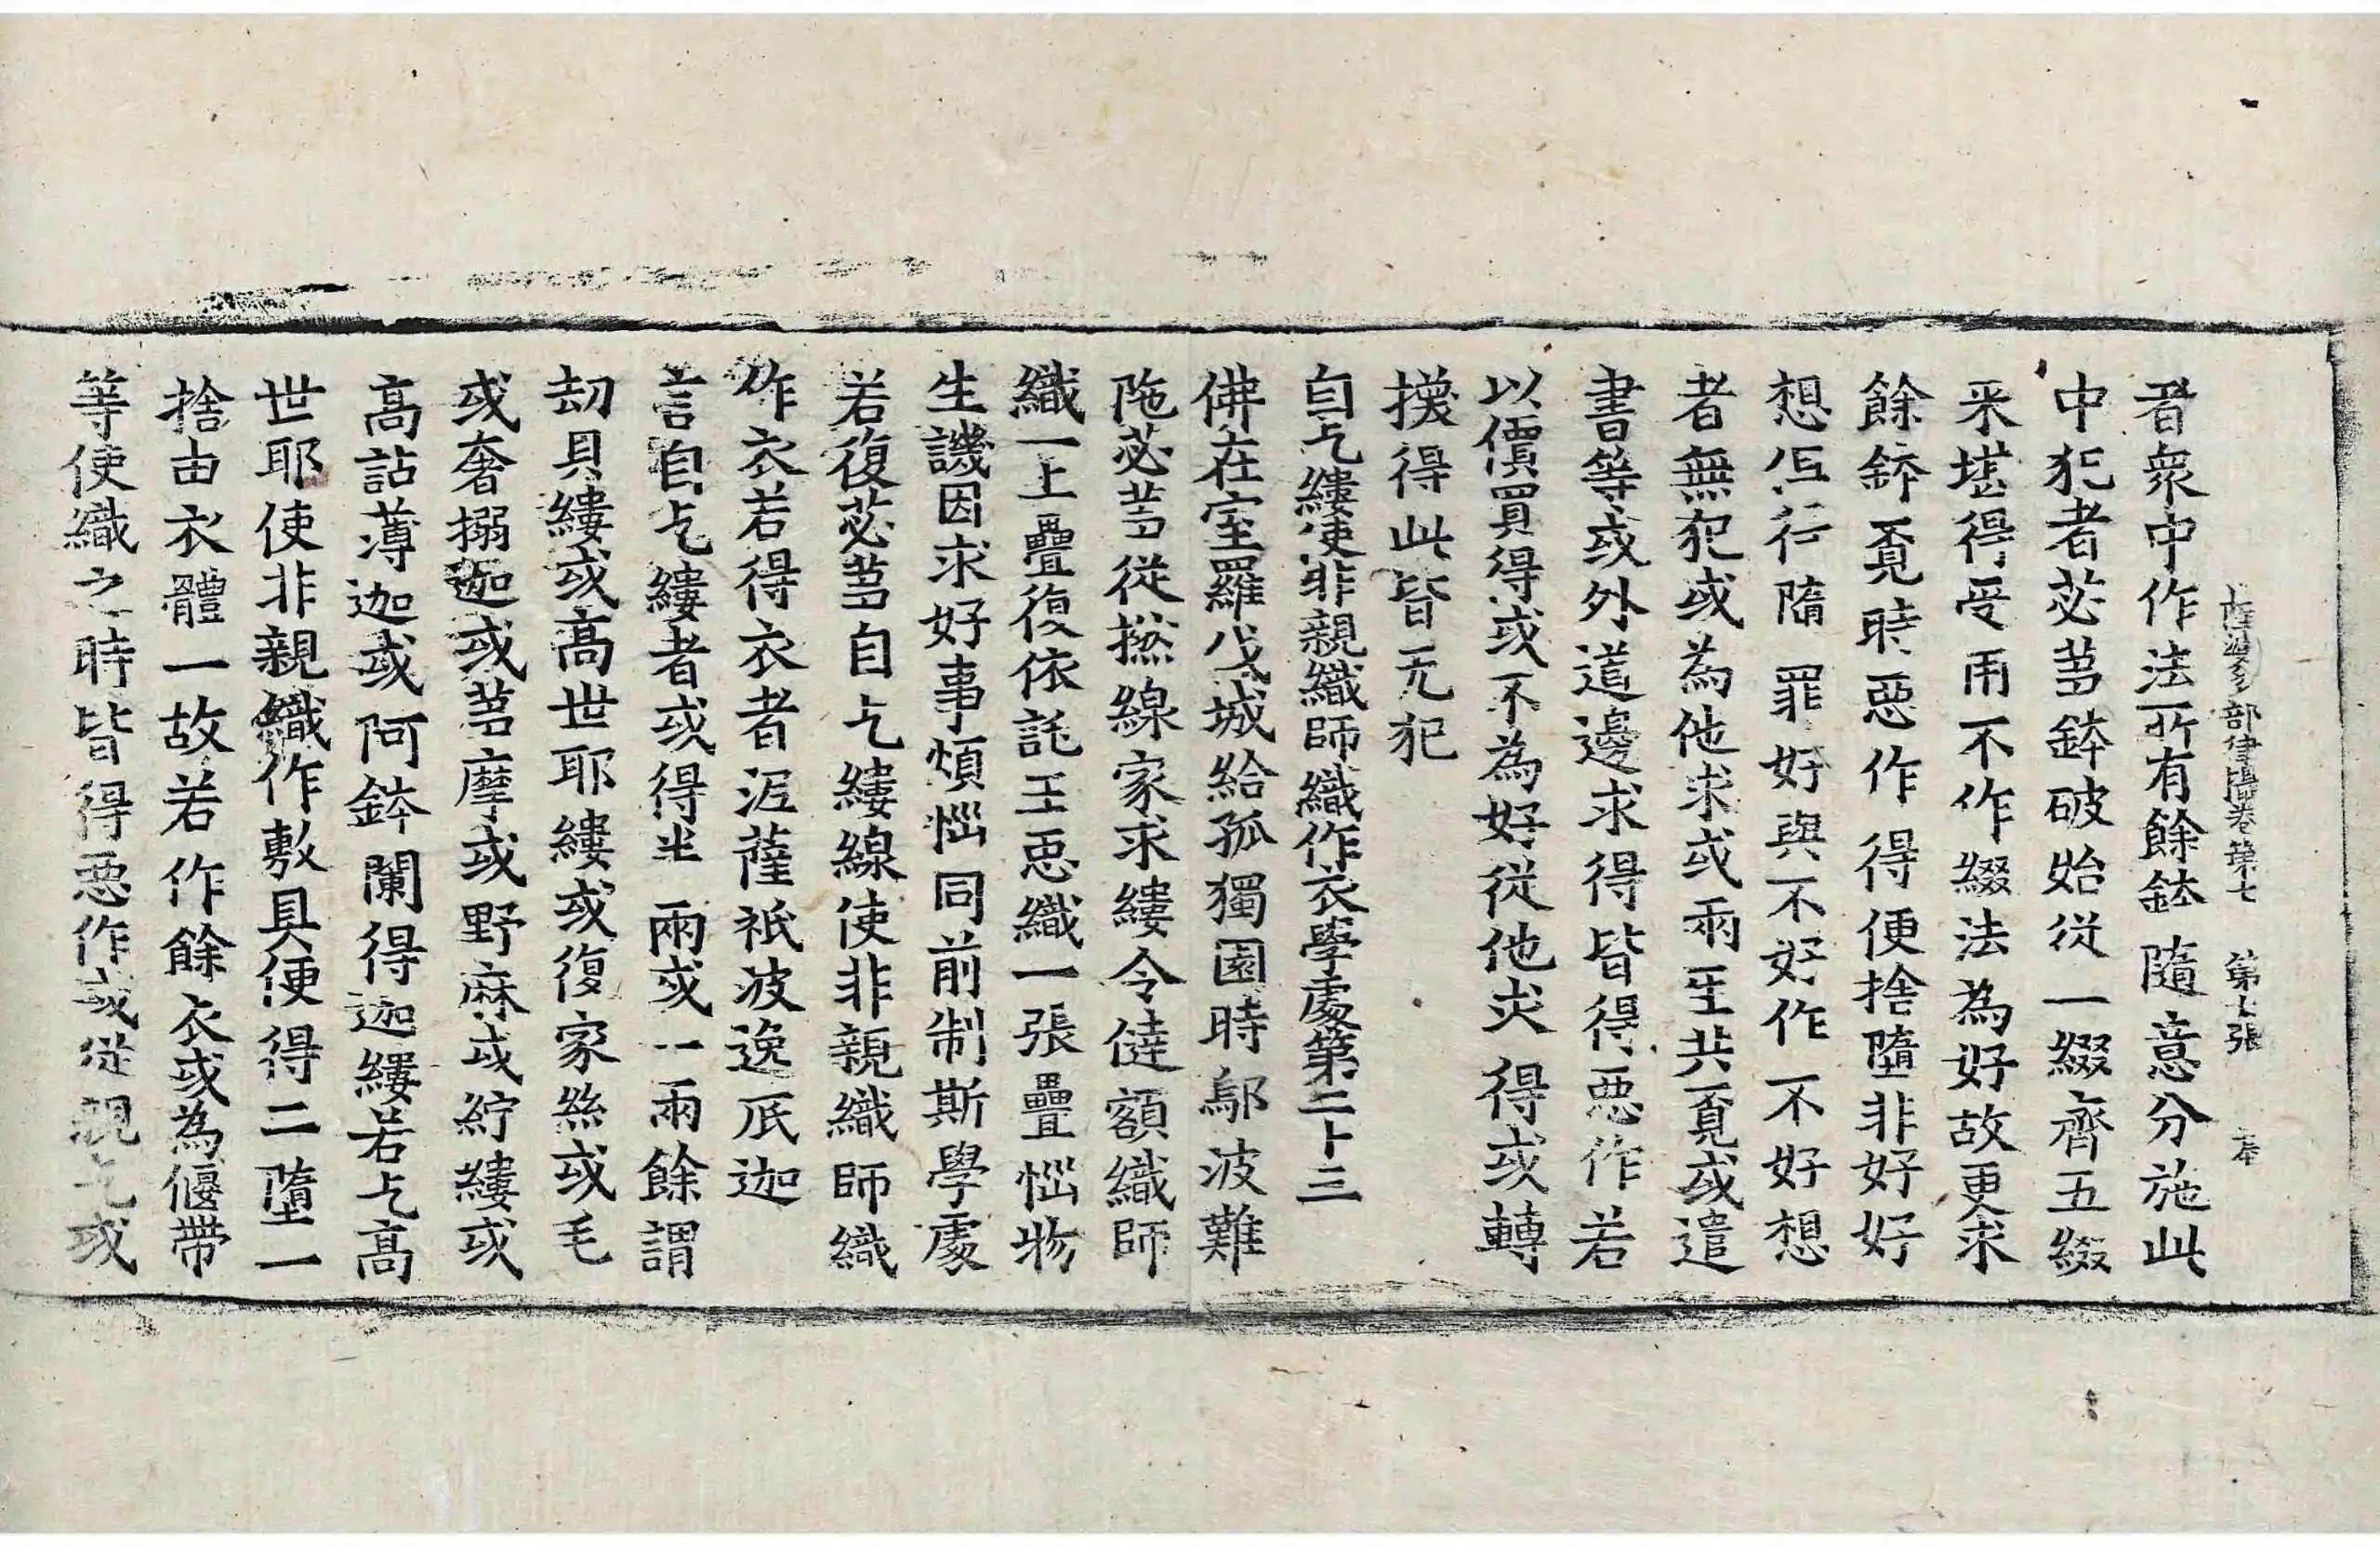 部律攝卷第七 第七張 本
者衆中作法所有餘鉢隨意分施此
中犯者苾芻鉢破始從一綴齊五綴
来堪得受用不作綴法為好故更求
餘鉢覓時惡作得便捨墮非好好
想行墮罪好與不好作不好想
者無犯或為他求或兩共覓或遣
書等或外道邊求得皆得惡作若
以價買得或不為好從他求得或轉
換得此皆无犯
自乞縷使非親織師織作衣學處第二十三
佛在室羅伐城給孤獨園時鄔波難
陁苾芻從撚線家求縷令㒓額織師
織一上疊復依託王惡織一張疊惱物
生譏因求好事煩惱同前制斯學處
若復苾芻自乞縷線使非親織師織
作衣若得衣者泥薩祇波逸底迦
言自乞縷者或得半兩或一兩餘謂
劫具縷或高世耶縷或復家絲或毛
或奢搦迦或芻摩或野麻或紵縷或
高詀薄迦或阿鉢闌得迦縷若乞高
世耶使非親織作敷具便得二墮一
捨由衣體一故若作餘衣或為偃帶
等使織之時皆得惡作或從親乞或